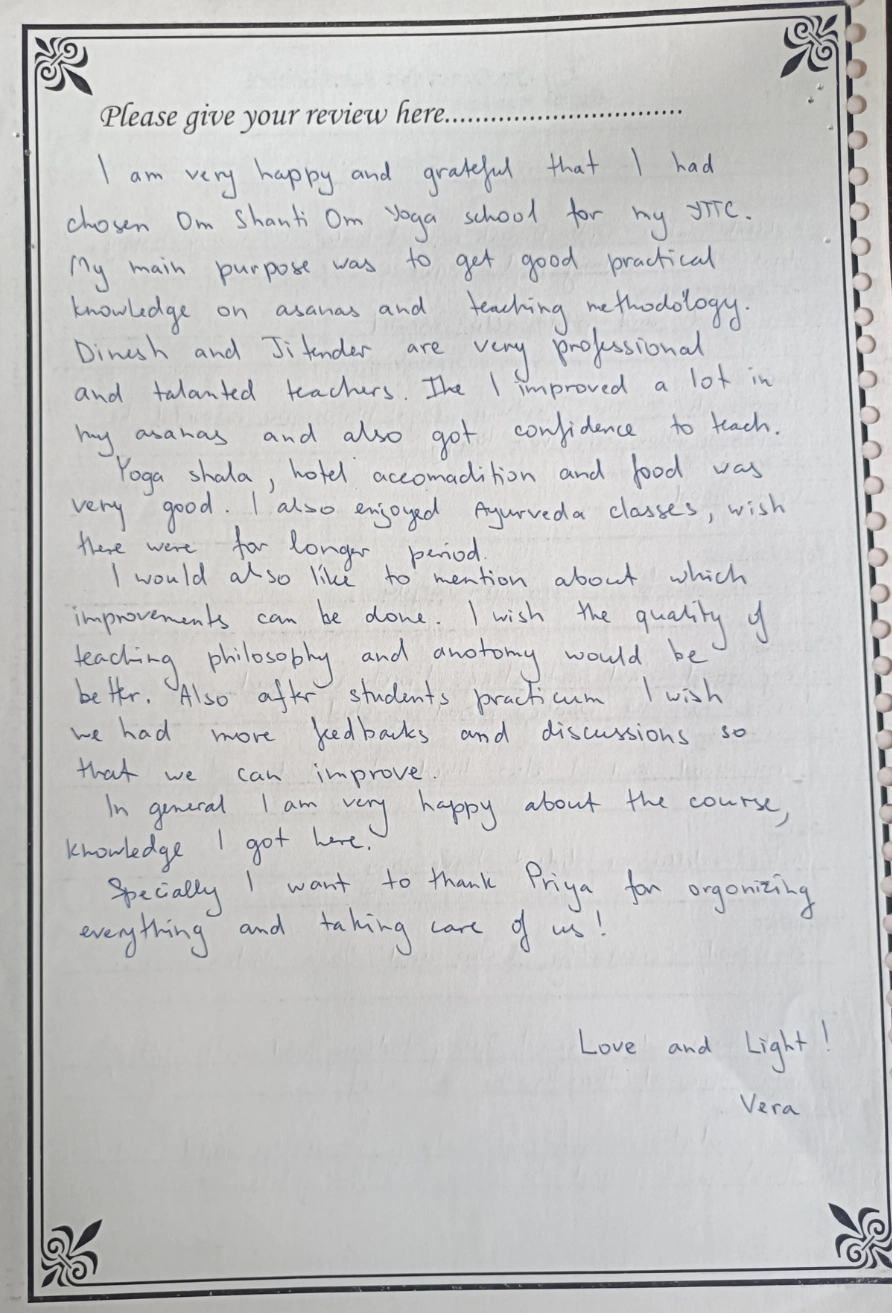 Please give your review here..............................
I am very happy and grateful that I had
chosen Om Shanti Om Yoga school for my YTTC.
My main purpose was to get good practical
knowledge on asanas and teaching methodology.
Dinesh and Jitender are very professional
and talanted teachers. The I improved a lot in
my asanas and also got confidence to teach.
Yoga shala, hotel accomadition and food was
very good. I also enjoyed Ayurveda classes, wish
there were for longer period.
I would also like to mention about which
improvements can be done. I wish the quality of
teaching philosophy and anotomy would be
better. Also after students practicum I wish
we had more feedbacks and discussions so
that we can improve.
In general I am very happy about the course,
knowledge I got here.
Specially I want to thank Priya for orgonizing
everything and taking care of us!
Love and Light!
Vera